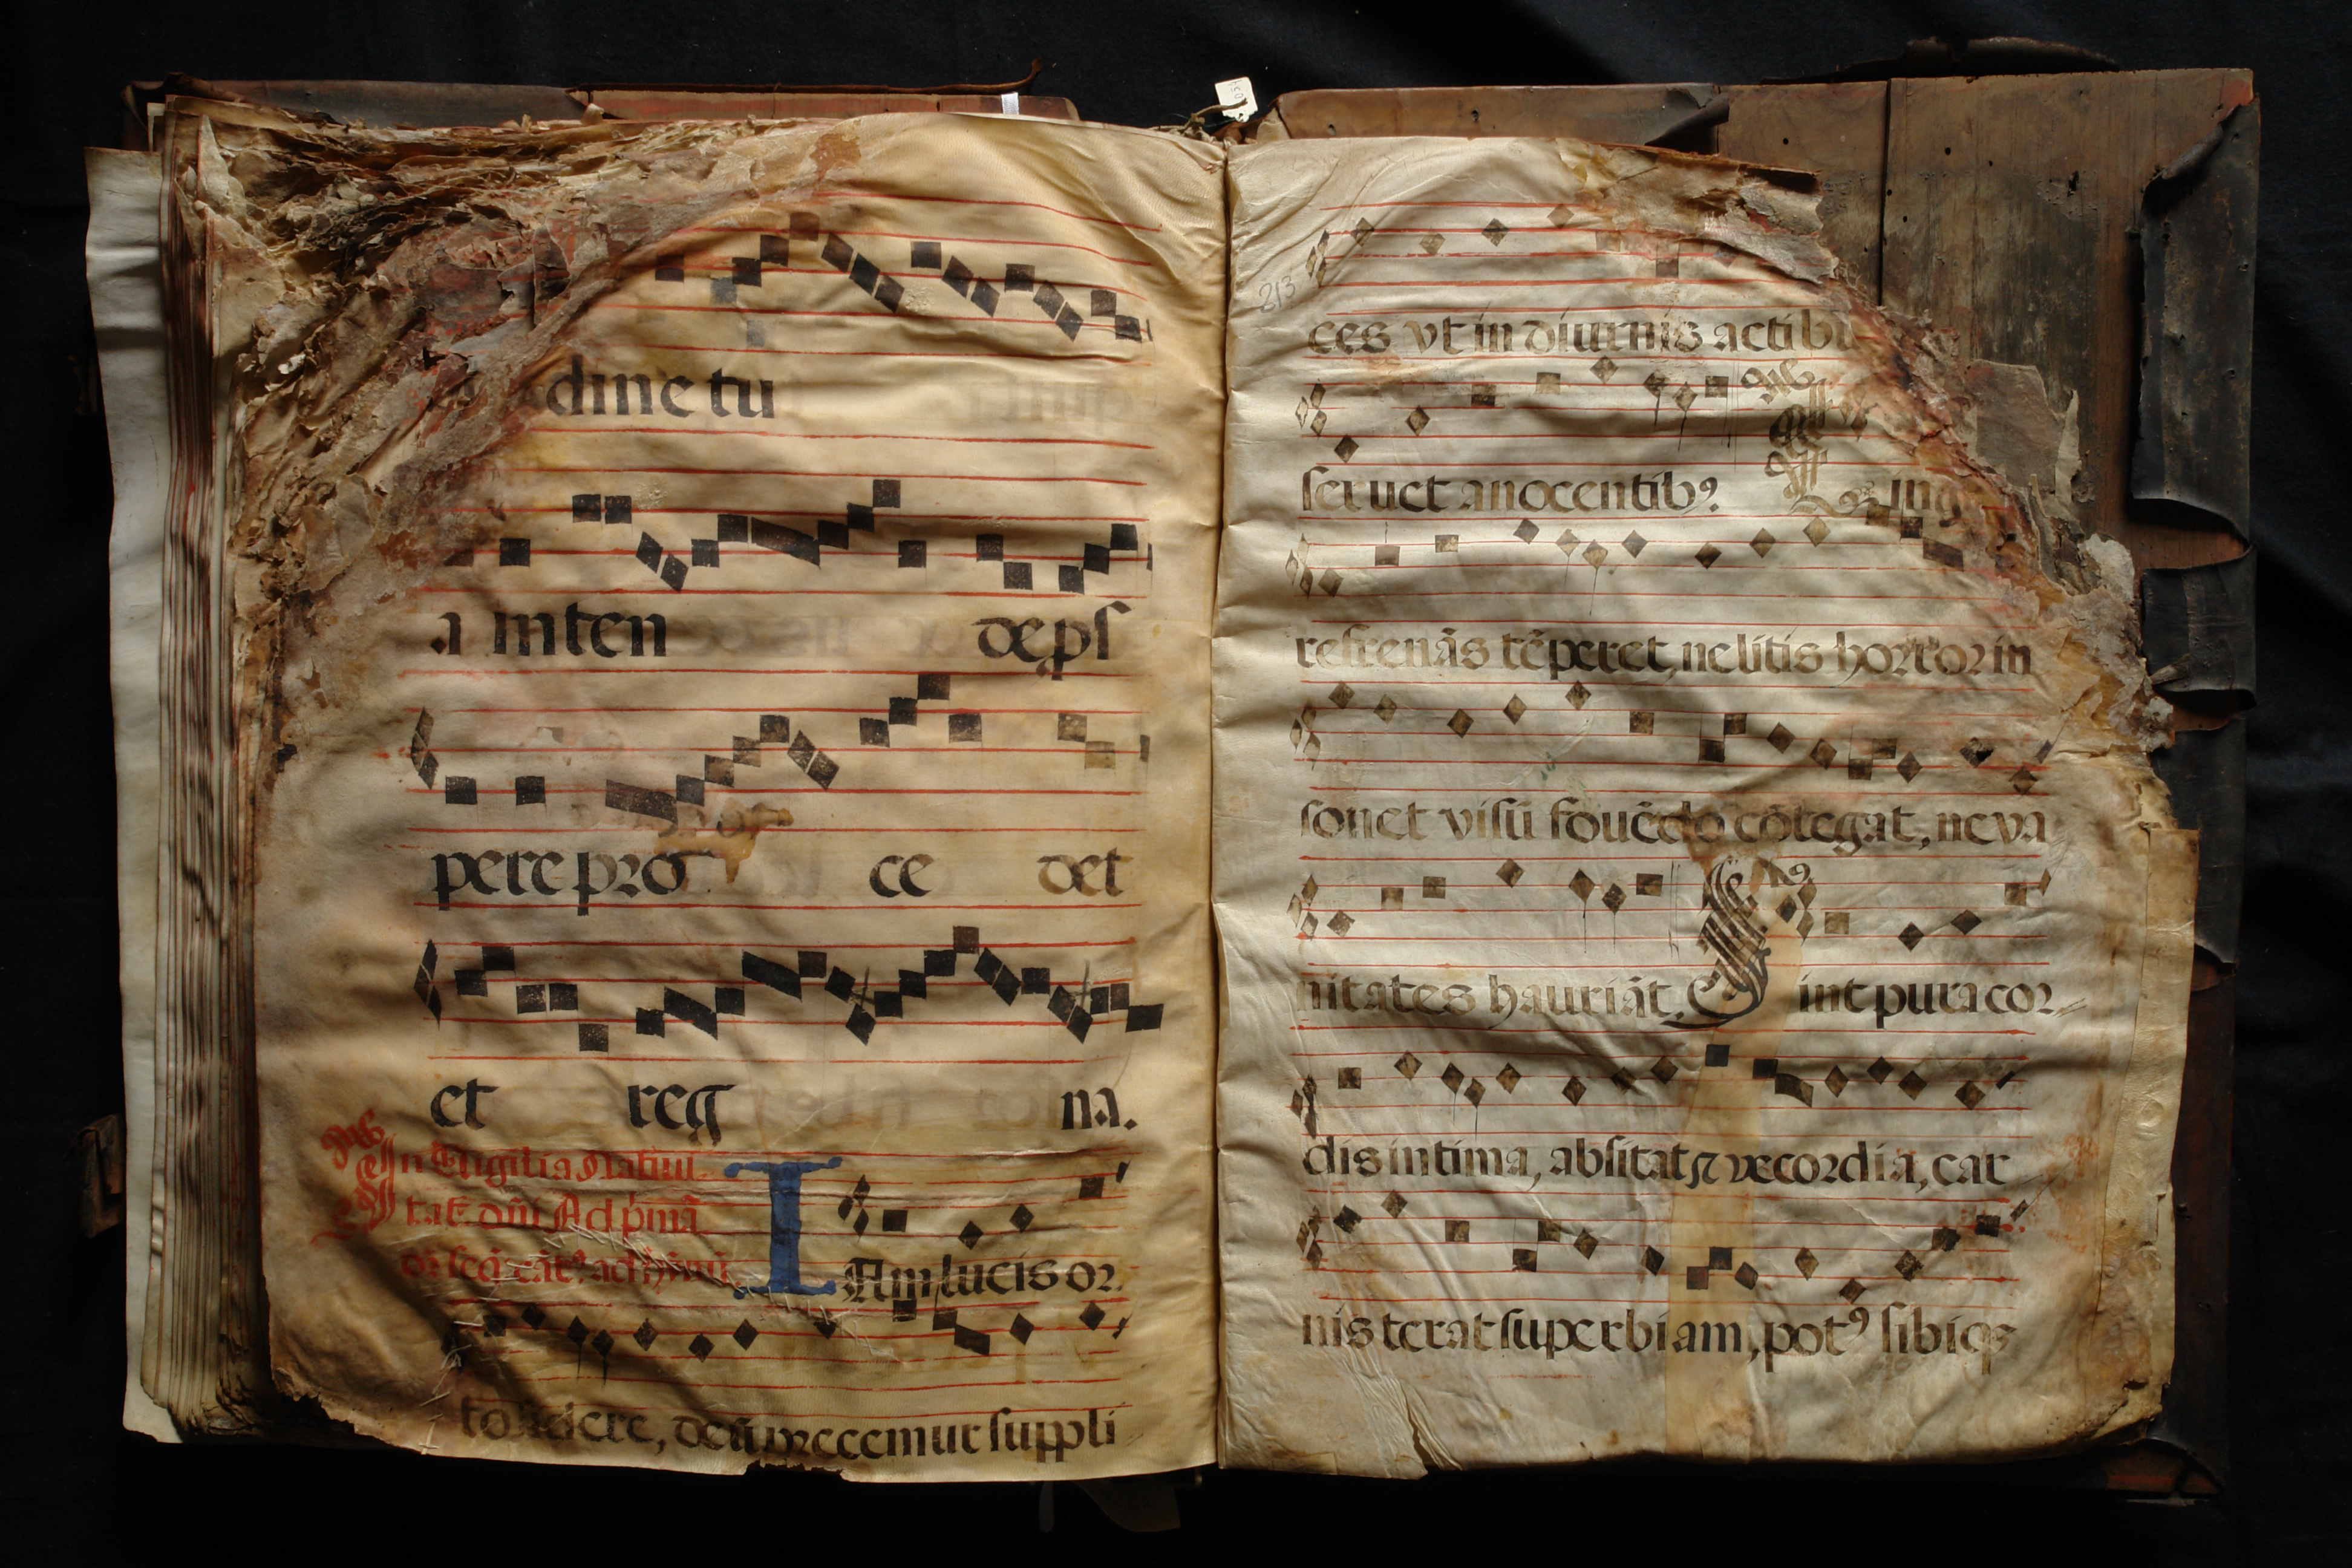 dine tu
a inten de pſ
pere pro ce det
et reg na.
In Vigilia Natiui
tat. dñi Ad primã
IAm lucis or
to sidere, deũ precemur suppli
213
ces vt in diurnis actibu
seruet a nocentibꝰ. Ling
refrenãs tẽperet, ne litis horror in
sonet visũ fouẽdo cõtegat, ne va
nitates hauriãt. Sint pura cor
dis intima, absitat⁊ vecordia, car
nis terat superbiam, potꝰ sibiqꝫ